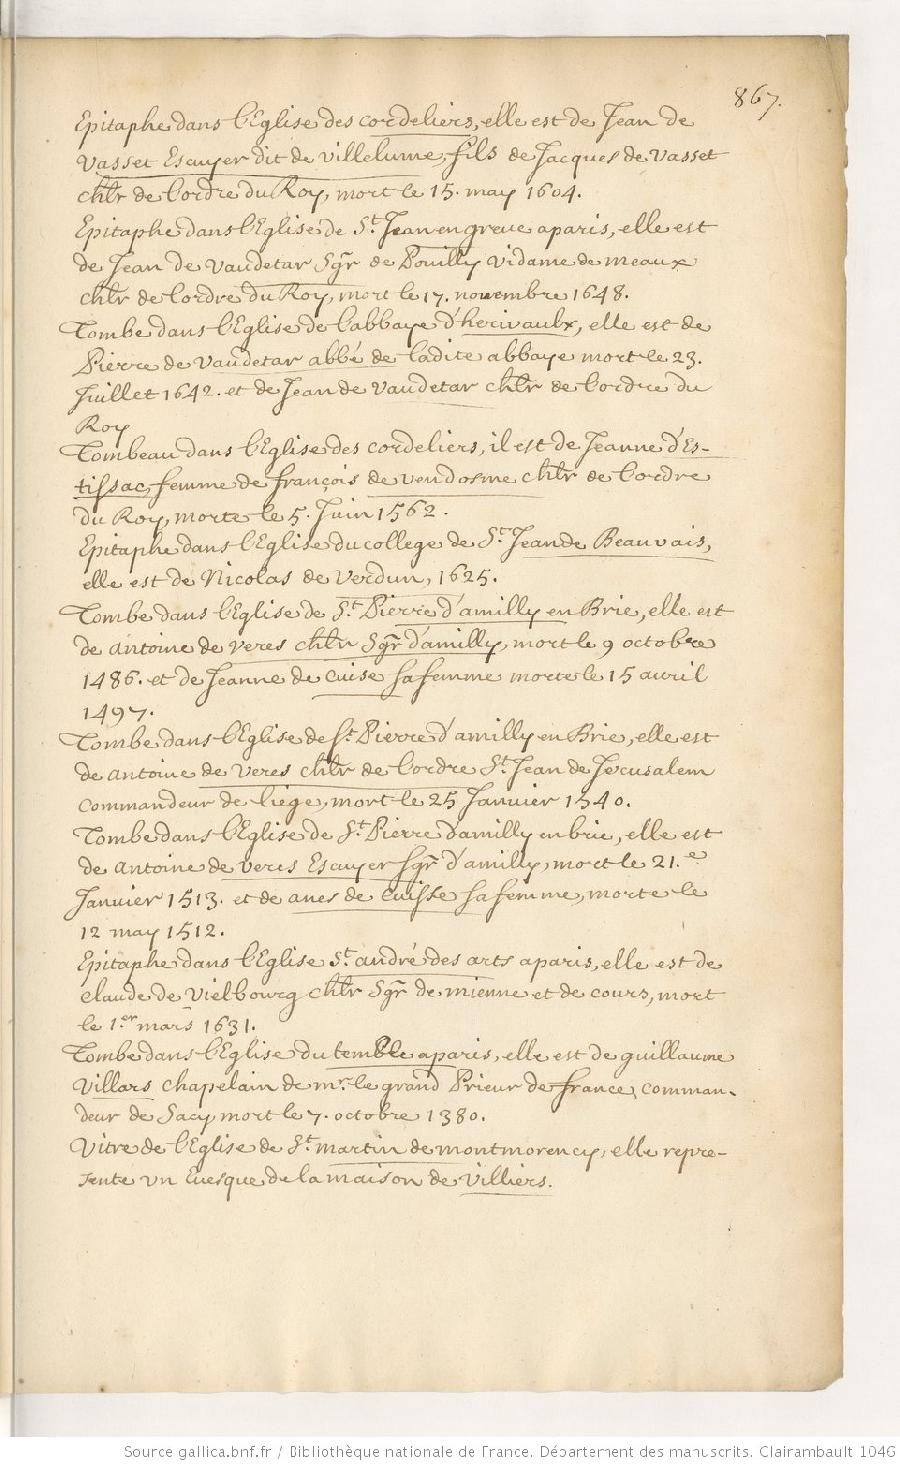 867.
Epitaphe dans l'Eglise des cordeliers, elle est de Jean de
Vasset Escuyer dit de villelume, fils de Jacques de Vasset
chlr de l'ordre du Roy, mort le 15. may 1604.
Epitaphe dans l'Eglise de St. Jean en greve a paris, elle est
de Jean de Vaudetar Sgr de Pouilly vidame de meaux
chlr de l'ordre du Roy, mort le 17. novembre 1648.
Tombe dans l'Eglise de l'abbaye d'herivaulx, elle est de
Pierre de Vaudetar abbé de ladite abbaye mort le 23.
Juillet 1642. et de Jean de Vaudetar chlr de l'ordre du
Roy
Tombeau dans l'Eglise des cordeliers, il est de Jeanne d'Es-
tissac, femme de françois de vendosme chlr de l'ordre
du Roy, morte le 5. Juin 1562.
Epitaphe dans l'Eglise du college de St. Jean de Beauvais,
elle est de Nicolas de Verdun, 1625.
Tombe dans l'Eglise de St. Pierre d'amilly en Brie, elle est
de antoine de veres chlr Sgr d'amilly, mort le 9 octobre
1486. et de Jeanne de cuise sa femme morte le 15 avril
1497.
Tombe dans l'Eglise de St Pierre d'amilly en Brie, elle est
de antoine de veres chlr de l'ordre St. Jean de Jerusalem
commandeur de liege, mort le 25 Janvier 1540.
Tombe dans l'Eglise de St. Pierre d'amilly en brie, elle est
de Antoine de veres Escuyer Sgr d'amilly, mort le 21.e
Janvier 1513. et de anes de cuisse sa femme, morte le
12 may 1512.
Epitaphe dans l'Eglise St. andré des arts a paris, elle est de
claude de Vielbourg chlr Sgr de mienne et de cours, mort
le 1.er mars 1631.
Tombe dans l'Eglise du temple a paris, elle est de guillaume
Villars chapelain de mr. le grand Prieur de france, comman-
deur de Sacy mort le 7. octobre 1380.
Vitre de l'Eglise de St. martin de montmorency, elle repre-
sente un Evesque de la maison de Villiers.
Source gallica.bnf.fr / Bibliothèque nationale de France. Département des manuscrits. Clairambault 1046